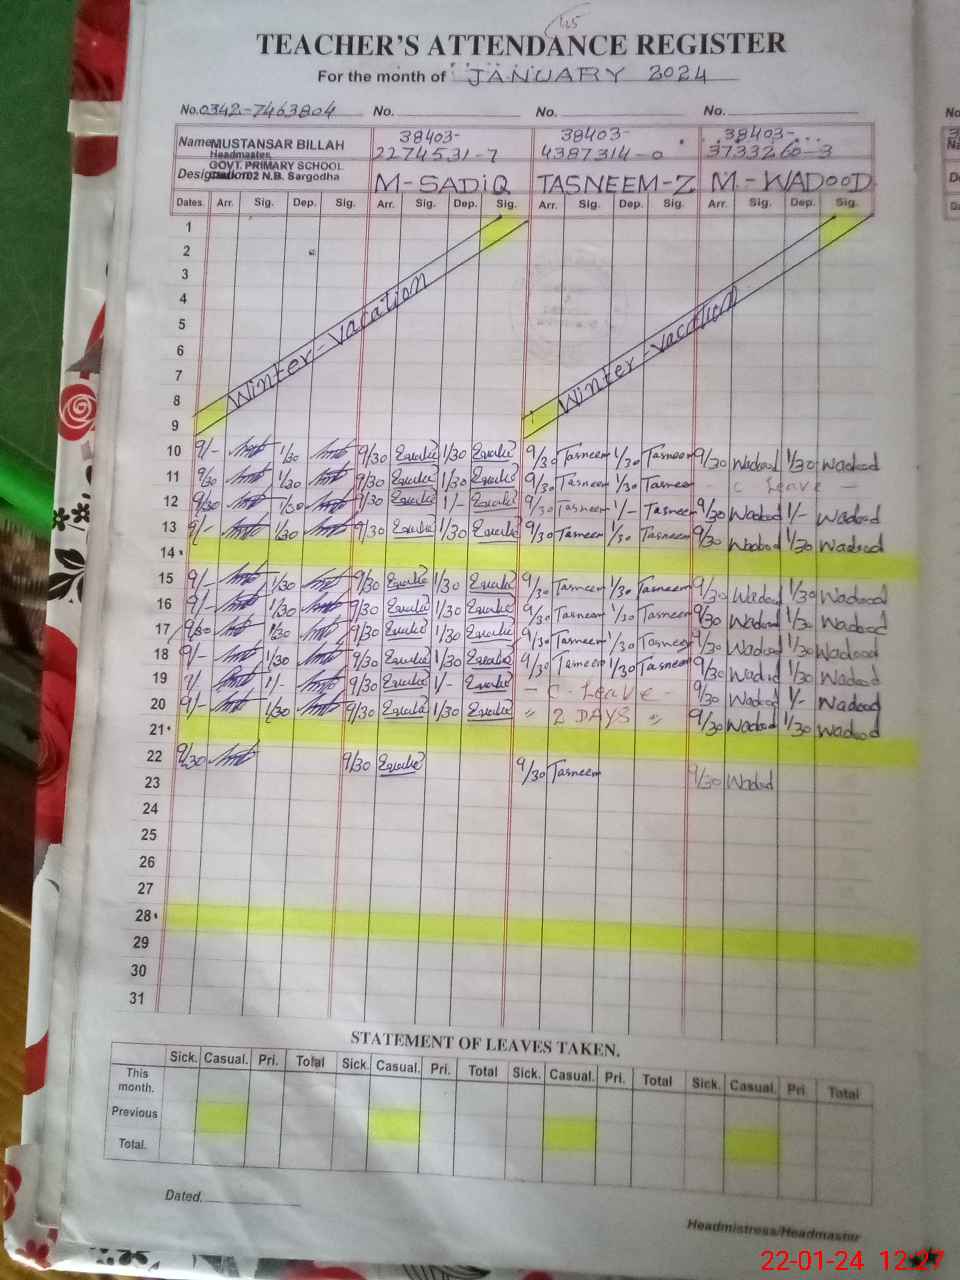 TEACHER'S ATTENDANCE REGISTER
For the month of JANUARY 2024
No. 0342-7463804 No. No. No.
Name MUSTANSAR BILLAH 38403- 38403- 38403-
Headmaster 2274531-7 4387314-0 3733260-3
GOVT. PRIMARY SCHOOL
Designation 102 N.B. Sargodha M-SADIQ TASNEEM-Z M.-WADOOD
Dates. Arr. Sig. Dep. Sig. Arr. Sig. Dep. Sig. Arr. Sig. Dep. Sig. Arr. Sig. Dep. Sig.
1
2
3
4
5
6
7
8
9
Winter-vacation Winter-vacation
10 9/- 1/30 9/30 1/30 9/30 Tasneem 1/30 Tasneem 9/30 Wadood 1/30 Wadood
11 9/30 1/30 9/30 1/30 9/30 Tasneem 1/30 Tasneem - C - Leave -
12 9/30 1/30 9/30 1/- 9/30 Tasneem 1/- Tasneem 9/30 Wadood 1/- Wadood
13 9/- 1/30 9/30 1/30 9/30 Tasneem 1/30 Tasneem 9/30 Wadood 1/30 Wadood
14
15 9/- 1/30 9/30 1/30 9/30 Tasneem 1/30 Tasneem 9/30 Wadood 1/30 Wadood
16 9/- 1/30 9/30 1/30 9/30 Tasneem 1/30 Tasneem 9/30 Wadood 1/30 Wadood
17 9/30 1/30 9/30 1/30 9/30 Tasneem 1/30 Tasneem 9/30 Wadood 1/30 Wadood
18 9/- 1/30 9/30 1/30 9/30 Tasneem 1/30 Tasneem 9/30 Wadood 1/30 Wadood
19 9/- 1/- 9/30 1/- - C - Leave - 9/30 Wadood 1/- Wadood
20 9/- 1/30 9/30 1/30 " 2 DAYS " 9/30 Wadood 1/30 Wadood
21
22 9/30 9/30 9/30 Tasneem 9/30 Wadood
23
24
25
26
27
28
29
30
31
STATEMENT OF LEAVES TAKEN.
Sick. Casual. Pri. Total Sick. Casual. Pri. Total Sick. Casual. Pri. Total Sick. Casual. Pri. Total
This month.
Previous
Total.
Dated.
Headmistress/Headmaster
22-01-24 12:27